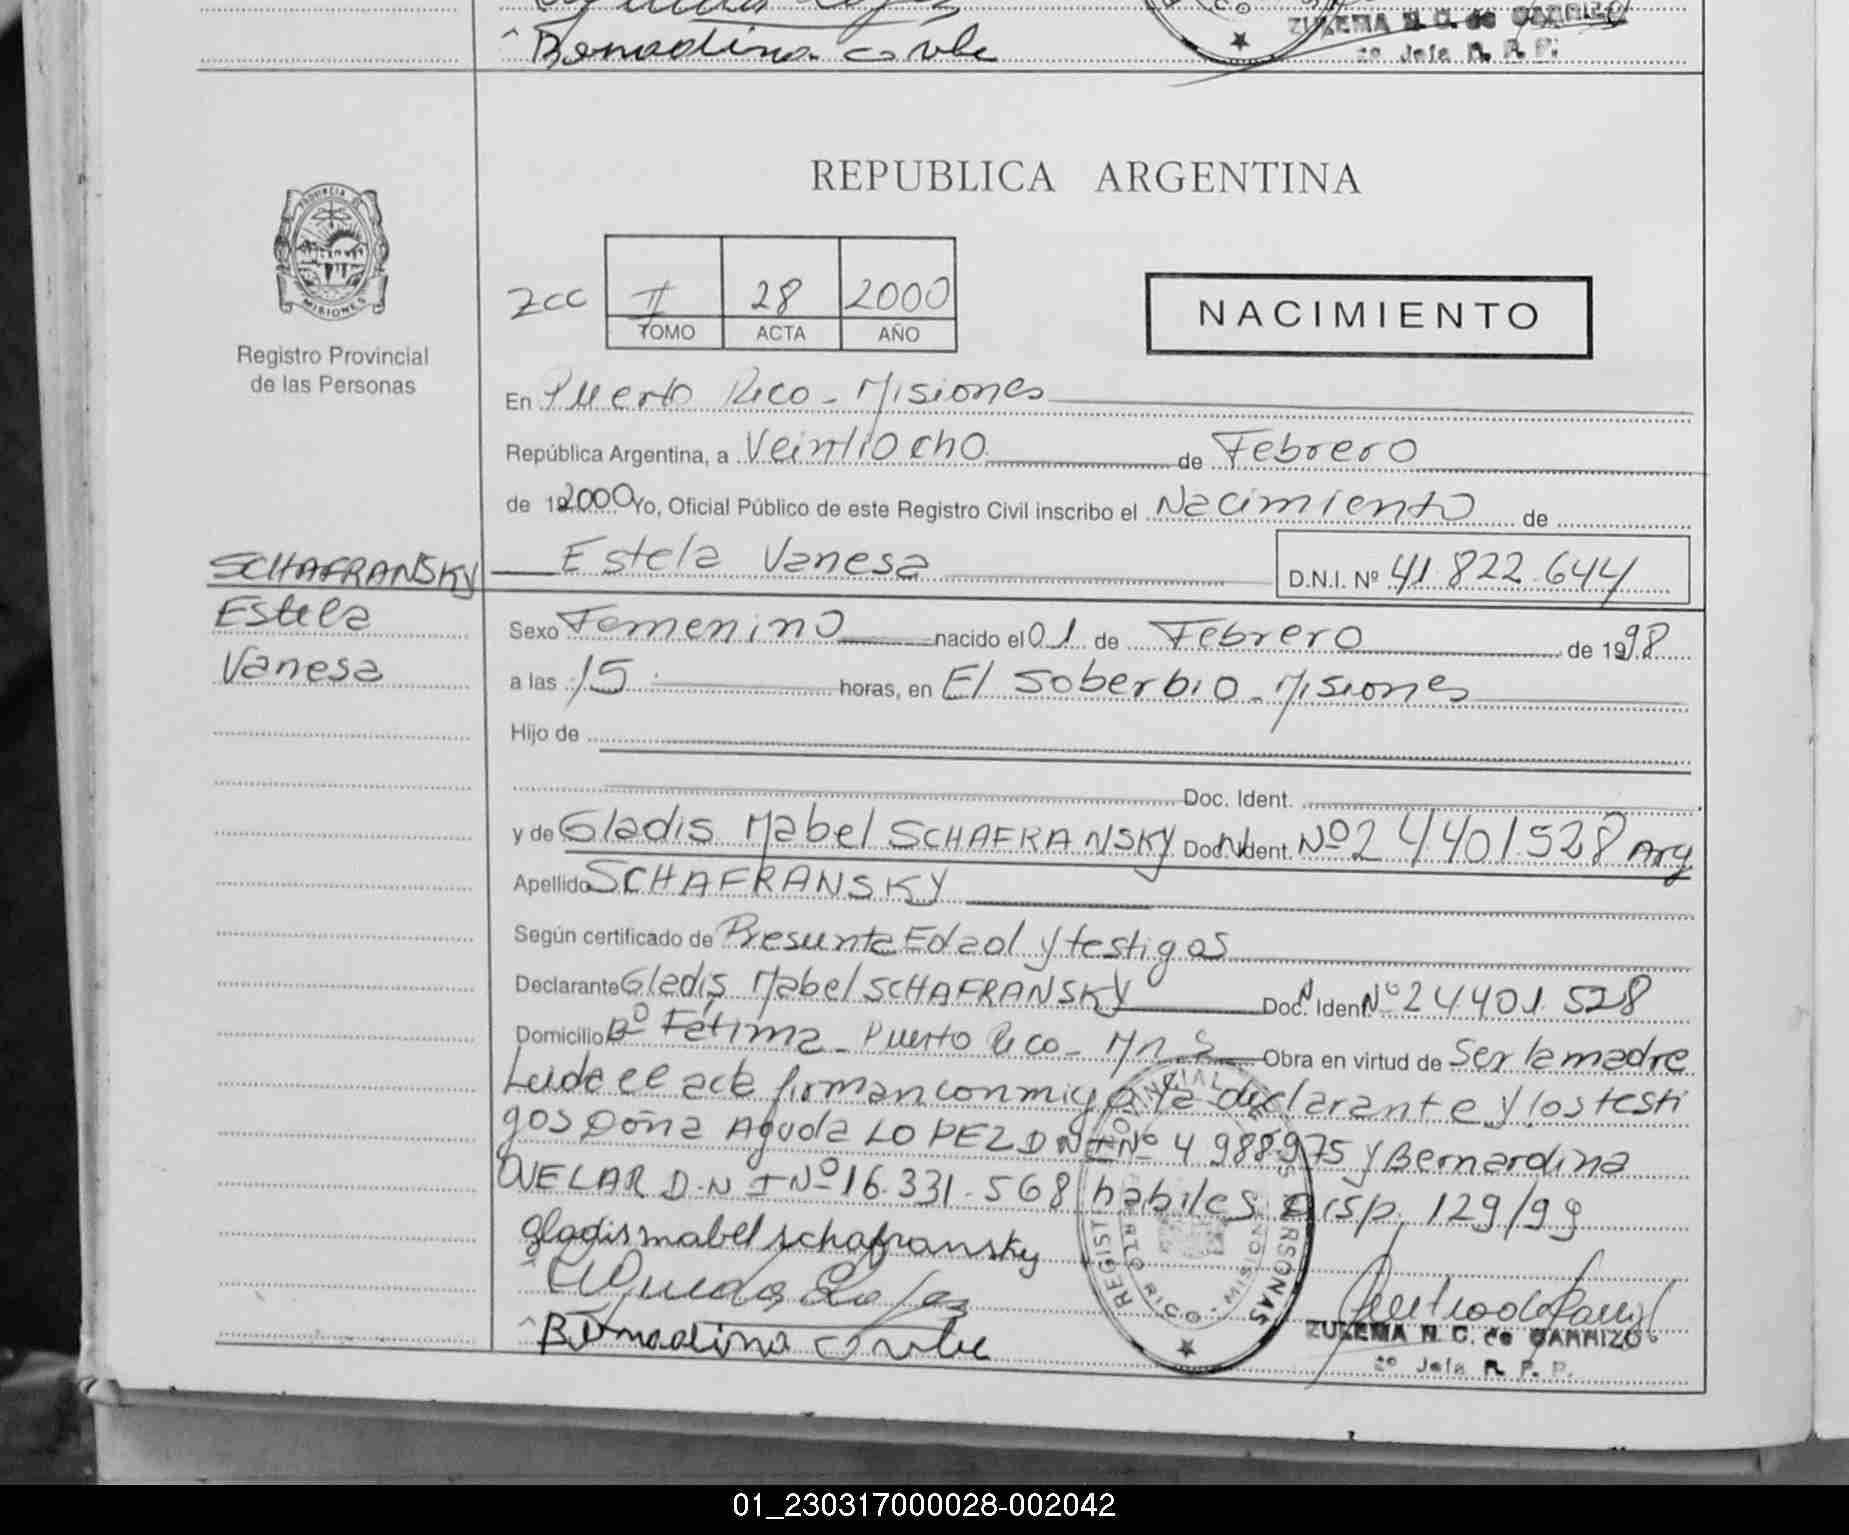 Bernadina
ZULEMA N. C. de CARRIZO
2º Jefa R. P. P.
REPUBLICA ARGENTINA
PROVINCIA DE
MISIONES
Registro Provincial
de las Personas
zcc II 28 2000
TOMO ACTA AÑO
NACIMIENTO
En Puerto Rico - Misiones
República Argentina, a Veintiocho de Febrero
de 19 2000 Yo, Oficial Público de este Registro Civil inscribo el Nacimiento de
SCHAFRANSKY Estela Vanesa D.N.I. Nº 41.822.644
Estela
Vanesa
Sexo Femenino nacido el 01 de Febrero de 1998
a las 15 horas, en El Soberbio - Misiones
Hijo de
Doc. Ident.
y de Gladis Mabel SCHAFRANSKY Doc. Ident. Nº 24401.528 Arg
Apellido SCHAFRANSKY
Según certificado de Presunta Edad y testigos
Declarante Gladis Mabel SCHAFRANSKY Doc. Ident. Nº 24401.528
Domicilio Bº Fátima - Puerto Rico - Mnes Obra en virtud de Ser la madre
Leida el acta firman conmigo la declarante y los testi
gos Doña Aguda LOPEZ DNI Nº 4988975 y Bernardina
OVELAR D.N I Nº 16.331.568 habiles Disp. 129/99
gladis mabel schafransky
Bernadina
REGISTRO PROVINCIAL DE LAS PERSONAS
PUERTO RICO - MISIONES
ZULEMA N. C. de CARRIZO
2º Jefa R. P. P.
01_230317000028-002042